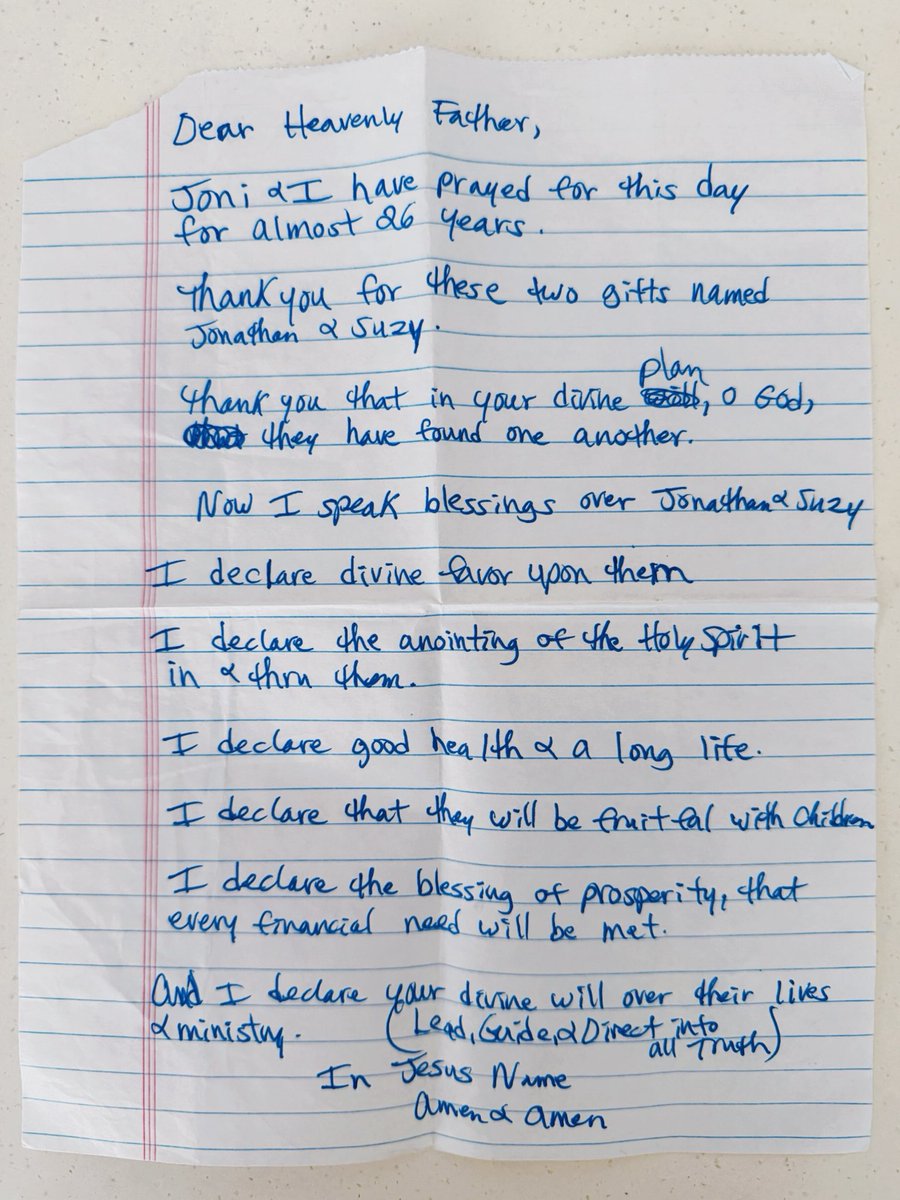 Dear Heavenly Father,
Joni & I have prayed for this day
for almost 26 years.
Thank you for these two gifts named
Jonathan & Suzy.
plan
Thank you that in your divine , O God,
they have found one another.
Now I speak blessings over Jonathan & Suzy
I declare divine favor upon them
I declare the anointing of the Holy Spirit
in & thru them.
I declare good health & a long life.
I declare that they will be fruitful with children
I declare the blessing of prosperity, that
every financial need will be met.
And I declare your divine will over their lives
& ministry. (Lead, Guide, & Direct into
all Truth)
In Jesus Name
Amen & amen